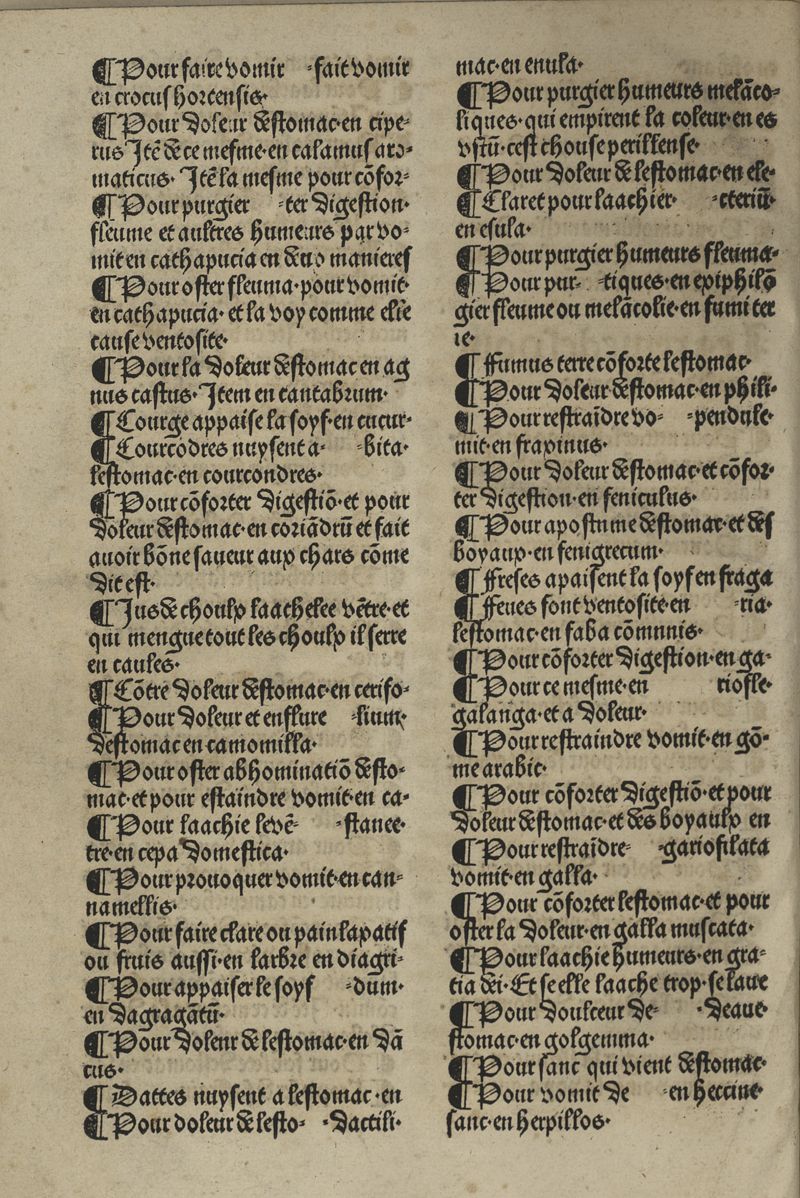 ¶ Pour faire vomir ·fait vomir
en crocus hortensis·
¶ Pour doleur destomac·en cipe-
rus Itē de ce mesme·en calamus aro-
maticus· Itē la mesme pour cōfor-
¶ Pour purgier ·ter digestion·
fleume et aultres humeurs par vo-
mit en cathapucia en deux manieres
¶ Pour oster fleuma·pour vomit·
en cathapucia· et la voy comme elle
cause ventosite·
¶ Pour la doleur destomac en ag
nus castus· Item en cantabrum·
¶ Courge appaise la soyf·en cucur-
¶ Courcōdres nuysent a- -bita·
lestomac·en courcondres·
¶ Pour cōforter digestiō·et pour
doleur destomac·en coriādrū et fait
auoir bōne saueur aux chars cōme
dit est·
¶ Jus de choulx laachelee vētre·et
qui mengue tout les choulx il serre
en caules·
¶ Cōtre doleur destomac·en cerifo-
¶ Pour doleur et enflure -lium·
destomac en camomilla·
¶ Pour oster abhominatiō desto-
mac·et pour estaindre vomit·en ca-
¶ Pour laachie le vē- -stanee·
tre·en cepa domestica·
¶ Pour prouoquer vomit·en can-
namellis·
¶ Pour faire clare ou pain laxatif
ou fruis aussi·en larbre en diagri-
¶ Pour appaiser le soyf -dum·
en dagragātū·
¶ Pour doleur de lestomac·en dā
cus·
¶ Dattes nuysent a lestomac·en
¶ Pour doleur de lesto- ·dactili·
mac·en enula·
¶ Pour purgier humeurs melāco-
liques·qui empirent la coleur·en es
vstū·cest chouse perillense·
¶ Pour doleur de lestomac·en ele-
¶ Claret pour laachier· -cteriū·
en esula·
¶ Pour purgier humeurs fleuma-
¶ Pour pur- -tiques·en epiphilō
gier fleume ou melācolie·en fumiter
re·
¶ Fumus terre cōforte lestomac·
¶ Pour doleur destomac·en phili-
¶ Pour restraīdre vo- -pendule·
mit·en fraxinus·
¶ Pour doleur destomac·et cōfor-
ter digestion·en feniculus·
¶ Pour apostnme destomac·et des
boyaux·en fenigrecum·
¶ Freses apaisent la soyf en fraga
¶ Feues font ventosite·en -ria·
lestomac·en faba cōmnnis·
¶ Pour cōforter digestion·en ga-
¶ Pour ce mesme·en riofle·
galanga·et a doleur·
¶ Pour restraindre vomit·en gō-
me arabic·
¶ Pour cōforter digestiō·et pour
doleur destomac·et des boyaulx en
¶ Pour restraīdre- -gariofilata
vomit·en galla·
¶ Pour cōforter lestomac·et pour
oster la doleur·en galla muscata·
¶ Pour laachie humeurs·en gra-
tia dei·Et se elle laache trop·se laue
¶ Pour doulceur de- ·deaue·
stomac·en golgemma·
¶ Pour sanc qui vient destomac·
¶ Pour vomit de en heccine·
sanc·en herpillos·